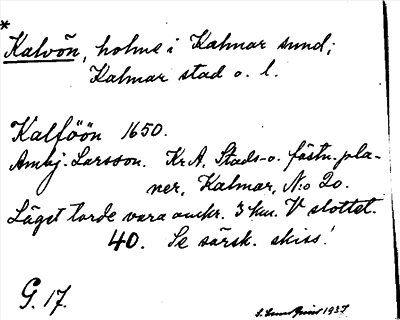 *
Kalvön, holme i Kalmar sund;
Kalmar stad o. l.
Kalföön 1650.
Ambj. Larsson. Kr A, Stads- o. fästn. pla-
ner, Kalmar, N:o 20.
Läget torde vara omkr. 3 km. V slottet.
40. Se särsk. skiss!
G. 17.
1937